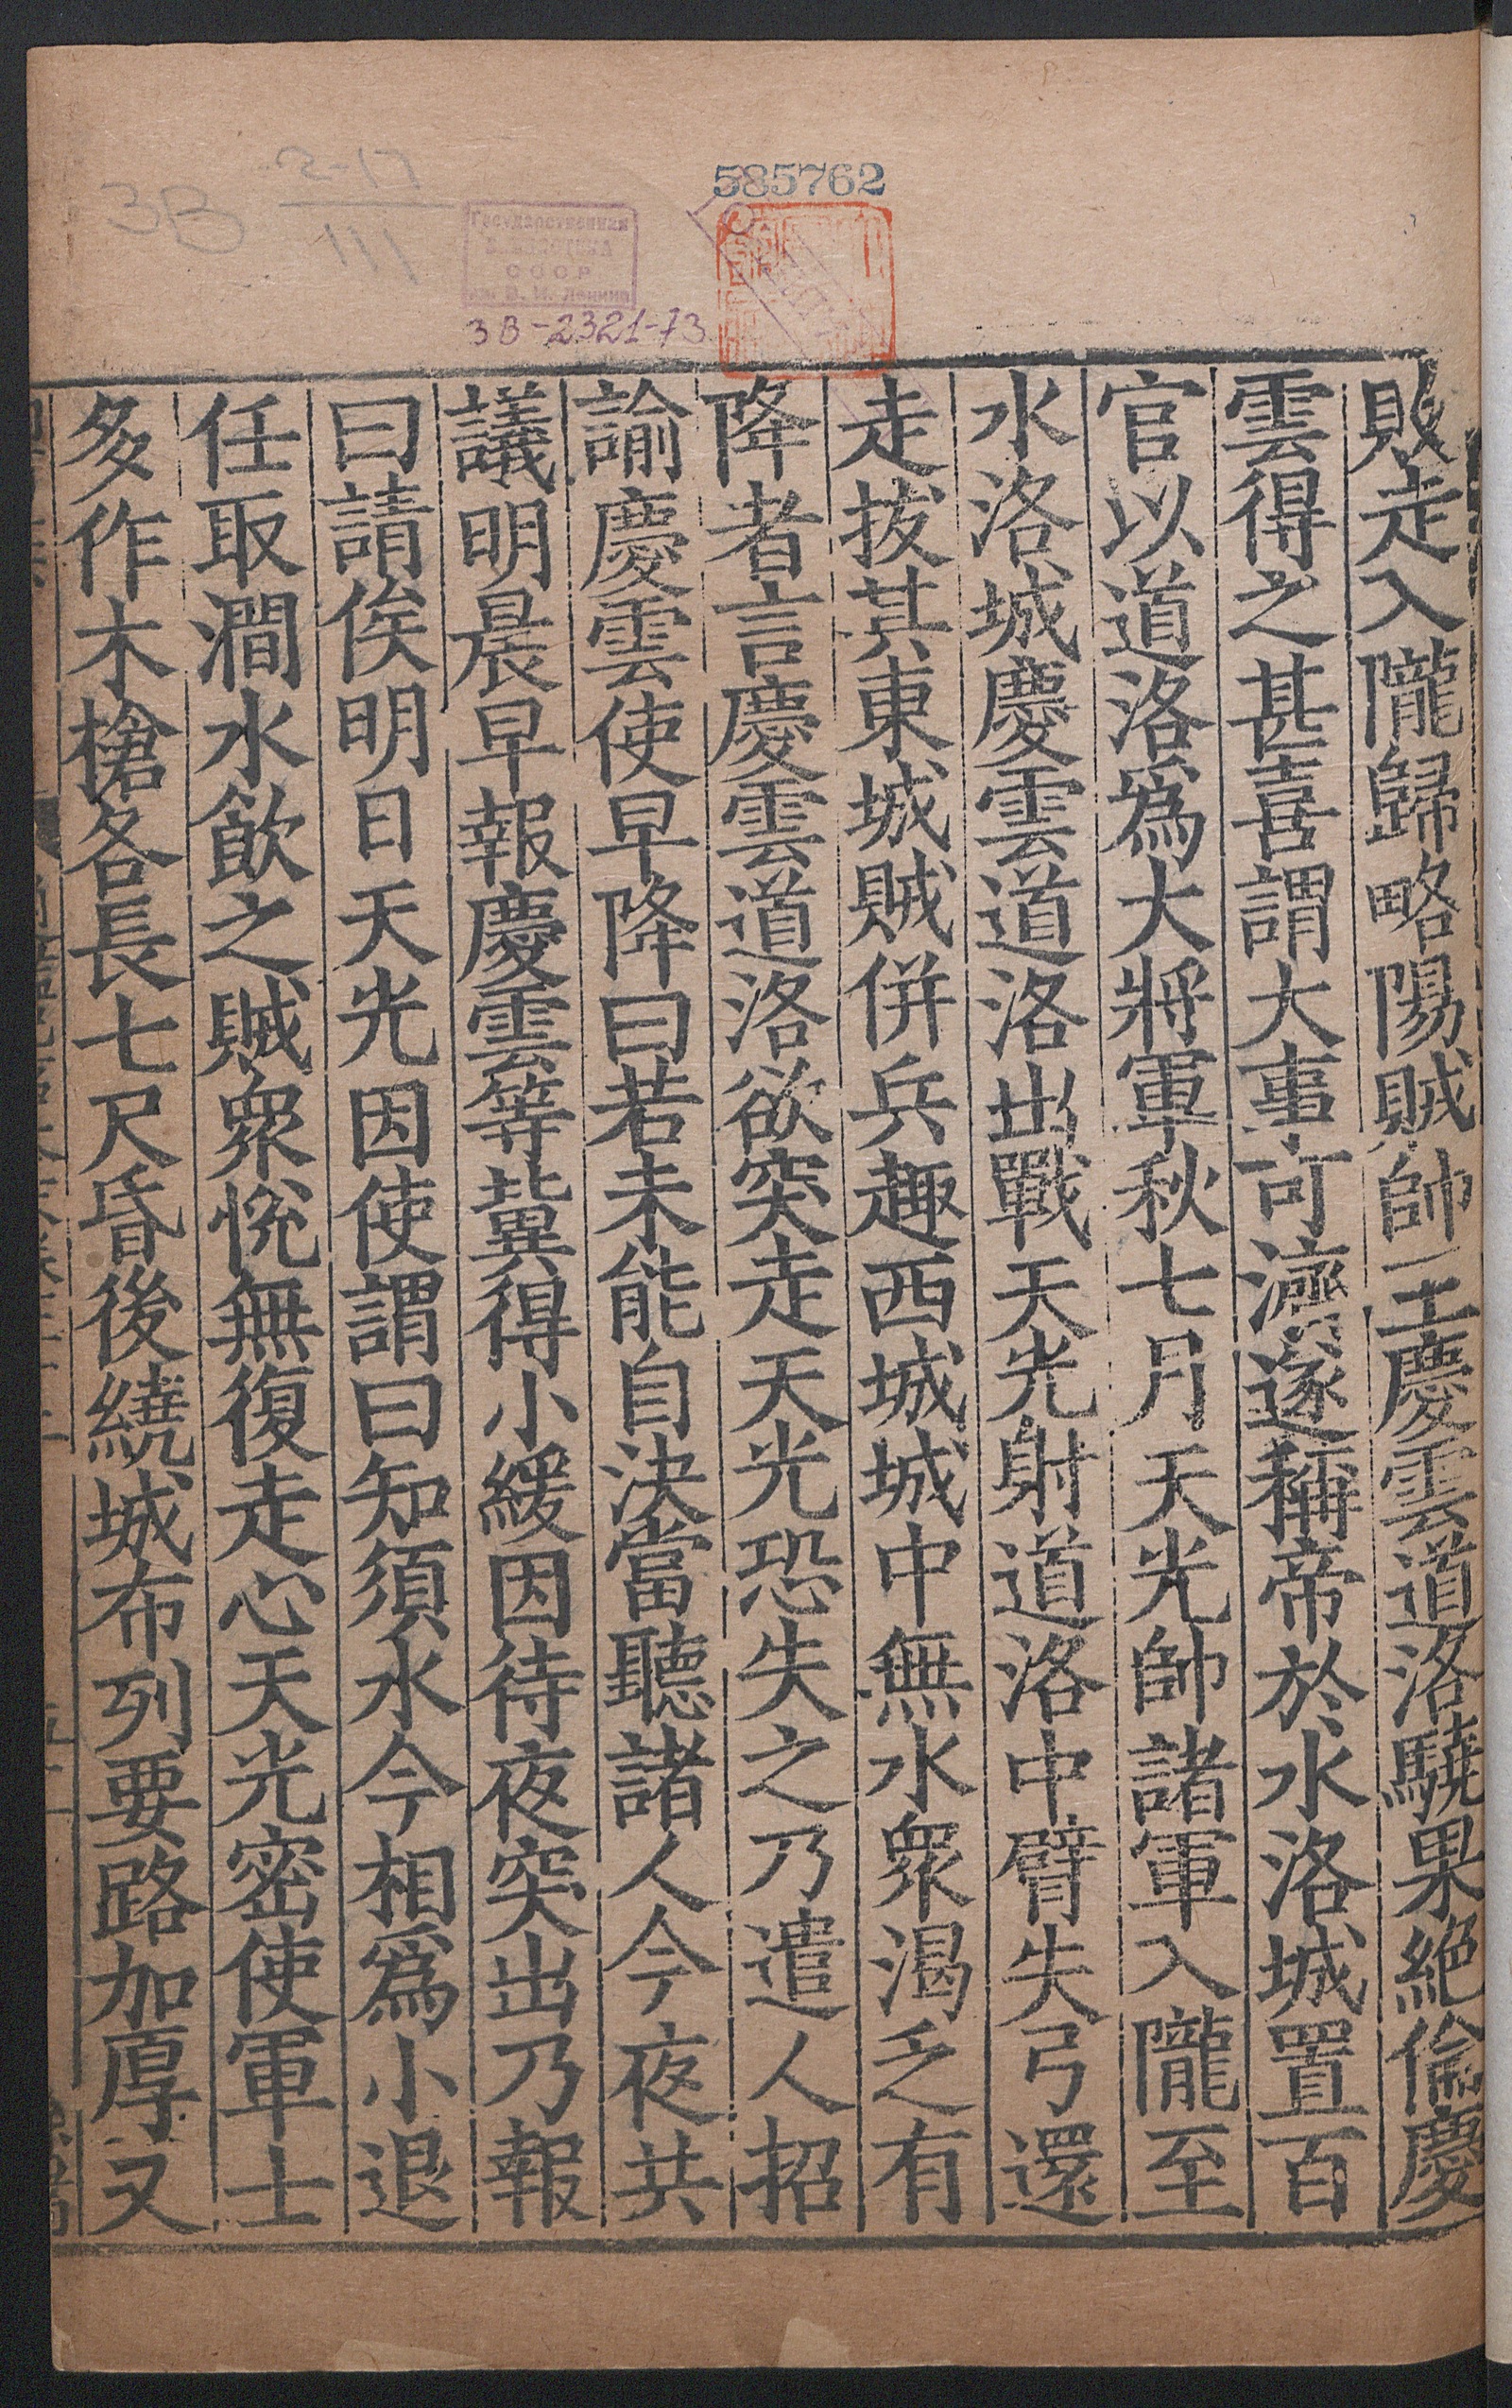 585762
3В 2-17
111
Государственная
БИБЛИОТЕКА
СССР
им. В. И. Ленина
3В-2321-73
敗走入隴歸略陽賊帥王慶雲道洛驍果絕倫慶
雲得之甚喜謂大事可濟遂稱帝於水洛城置百
官以道洛爲大將軍秋七月天光帥諸軍入隴至
水洛城慶雲道洛出戰天光射道洛中臂失弓還
走拔其東城賊併兵趣西城城中無水衆渴乏有
降者言慶雲道洛欲突走天光恐失之乃遣人招
諭慶雲使早降曰若未能自決當聽諸人今夜共
議明晨早報慶雲等冀得小緩因待夜突出乃報
曰請俟明日天光因使謂曰知須水今相爲小退
任取澗水飲之賊衆悅無復走心天光密使軍士
多作木槍各長七尺昏後繞城布列要路加厚又